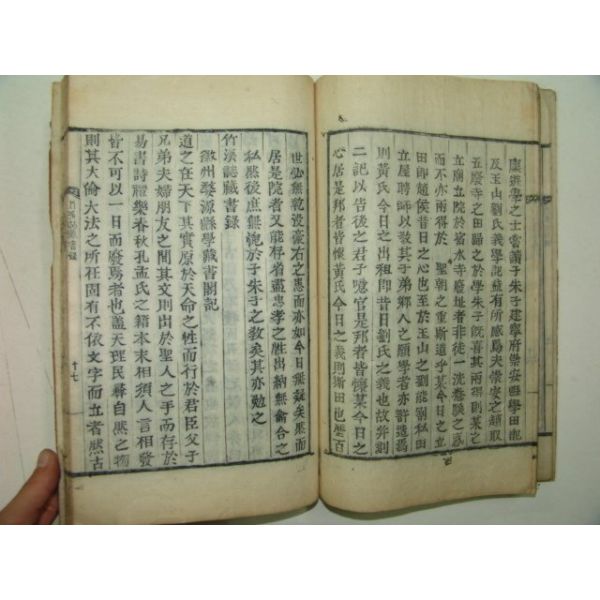 學之士嘗讀子朱子建寧府崇安縣學田記
及玉山劉氏義學記竊有所感焉夫崇安之籍取
五廢寺之田歸之於學朱子旣喜其兩得則某之
立廟立院於宿水寺廢址者非徒一洗
而不亦兩得於 聖朝之重斯道乎某今日之立
田卽趙侯昔日之心也至於玉山之劉能割私田
立屋聘師以敎其子弟鄕人之願學者亦許造焉
則黃氏今日之出租卽昔日劉氏之義也故幷刻
二記以告後之君子噫官是邦者皆懷某今日之
心居是邦者皆懷黃氏今日之義則斯田也歷百
世必無乾沒豪右之患而亦如今日無疑矣然而
居是院者又能存省盡忠孝之性出納無龠合之
私然後庶無愧於子朱子之敎矣其亦勉之
竹溪誌藏書錄
徽州婺源縣學藏書閣記
道之在天下其實原於天命之性而行於君臣父子
兄弟夫婦朋友之間其文則出於聖人之手而存於
易書詩禮樂春秋孔孟氏之籍本末相須人言相發
皆不可以一日而廢焉者也盖天理民彛自然之物
則其大倫大法之所在固有不依文字而立者然古
十七